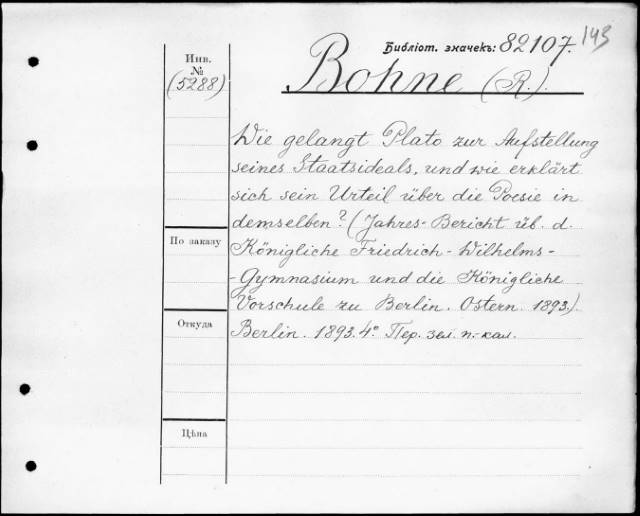 Библіот. значекъ: 82107. 143
Инв. №
(5288)
Bohne (R.).
Wie gelangt Plato zur Aufstellung
seines Staatsideals, und wie erklärt
sich sein Urteil über die Poesie in
demselben? (Jahres-Bericht üb. d.
Königliche Friedrich-Wilhelms-
-Gymnasium und die Königliche
Vorschule zu Berlin. Ostern. 1893.)
Berlin. 1893. 4º Пер. зел. п.-кал.
По заказу
Откуда
Цѣна